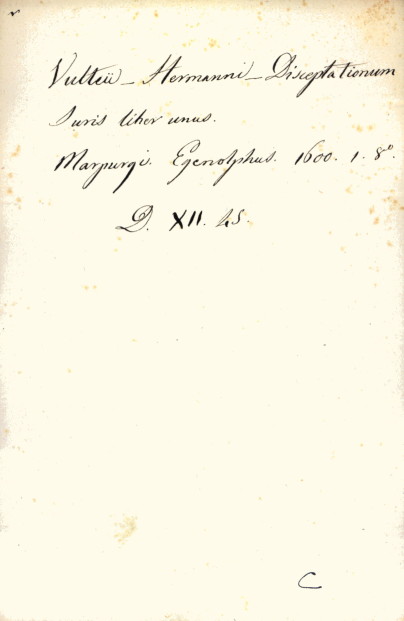 Vulteii - Hermanni - Disceptationum
Juris liber unus.
Marpurgi. Egenolphus. 1600. 1. 8º.
D. XII. 45.
C